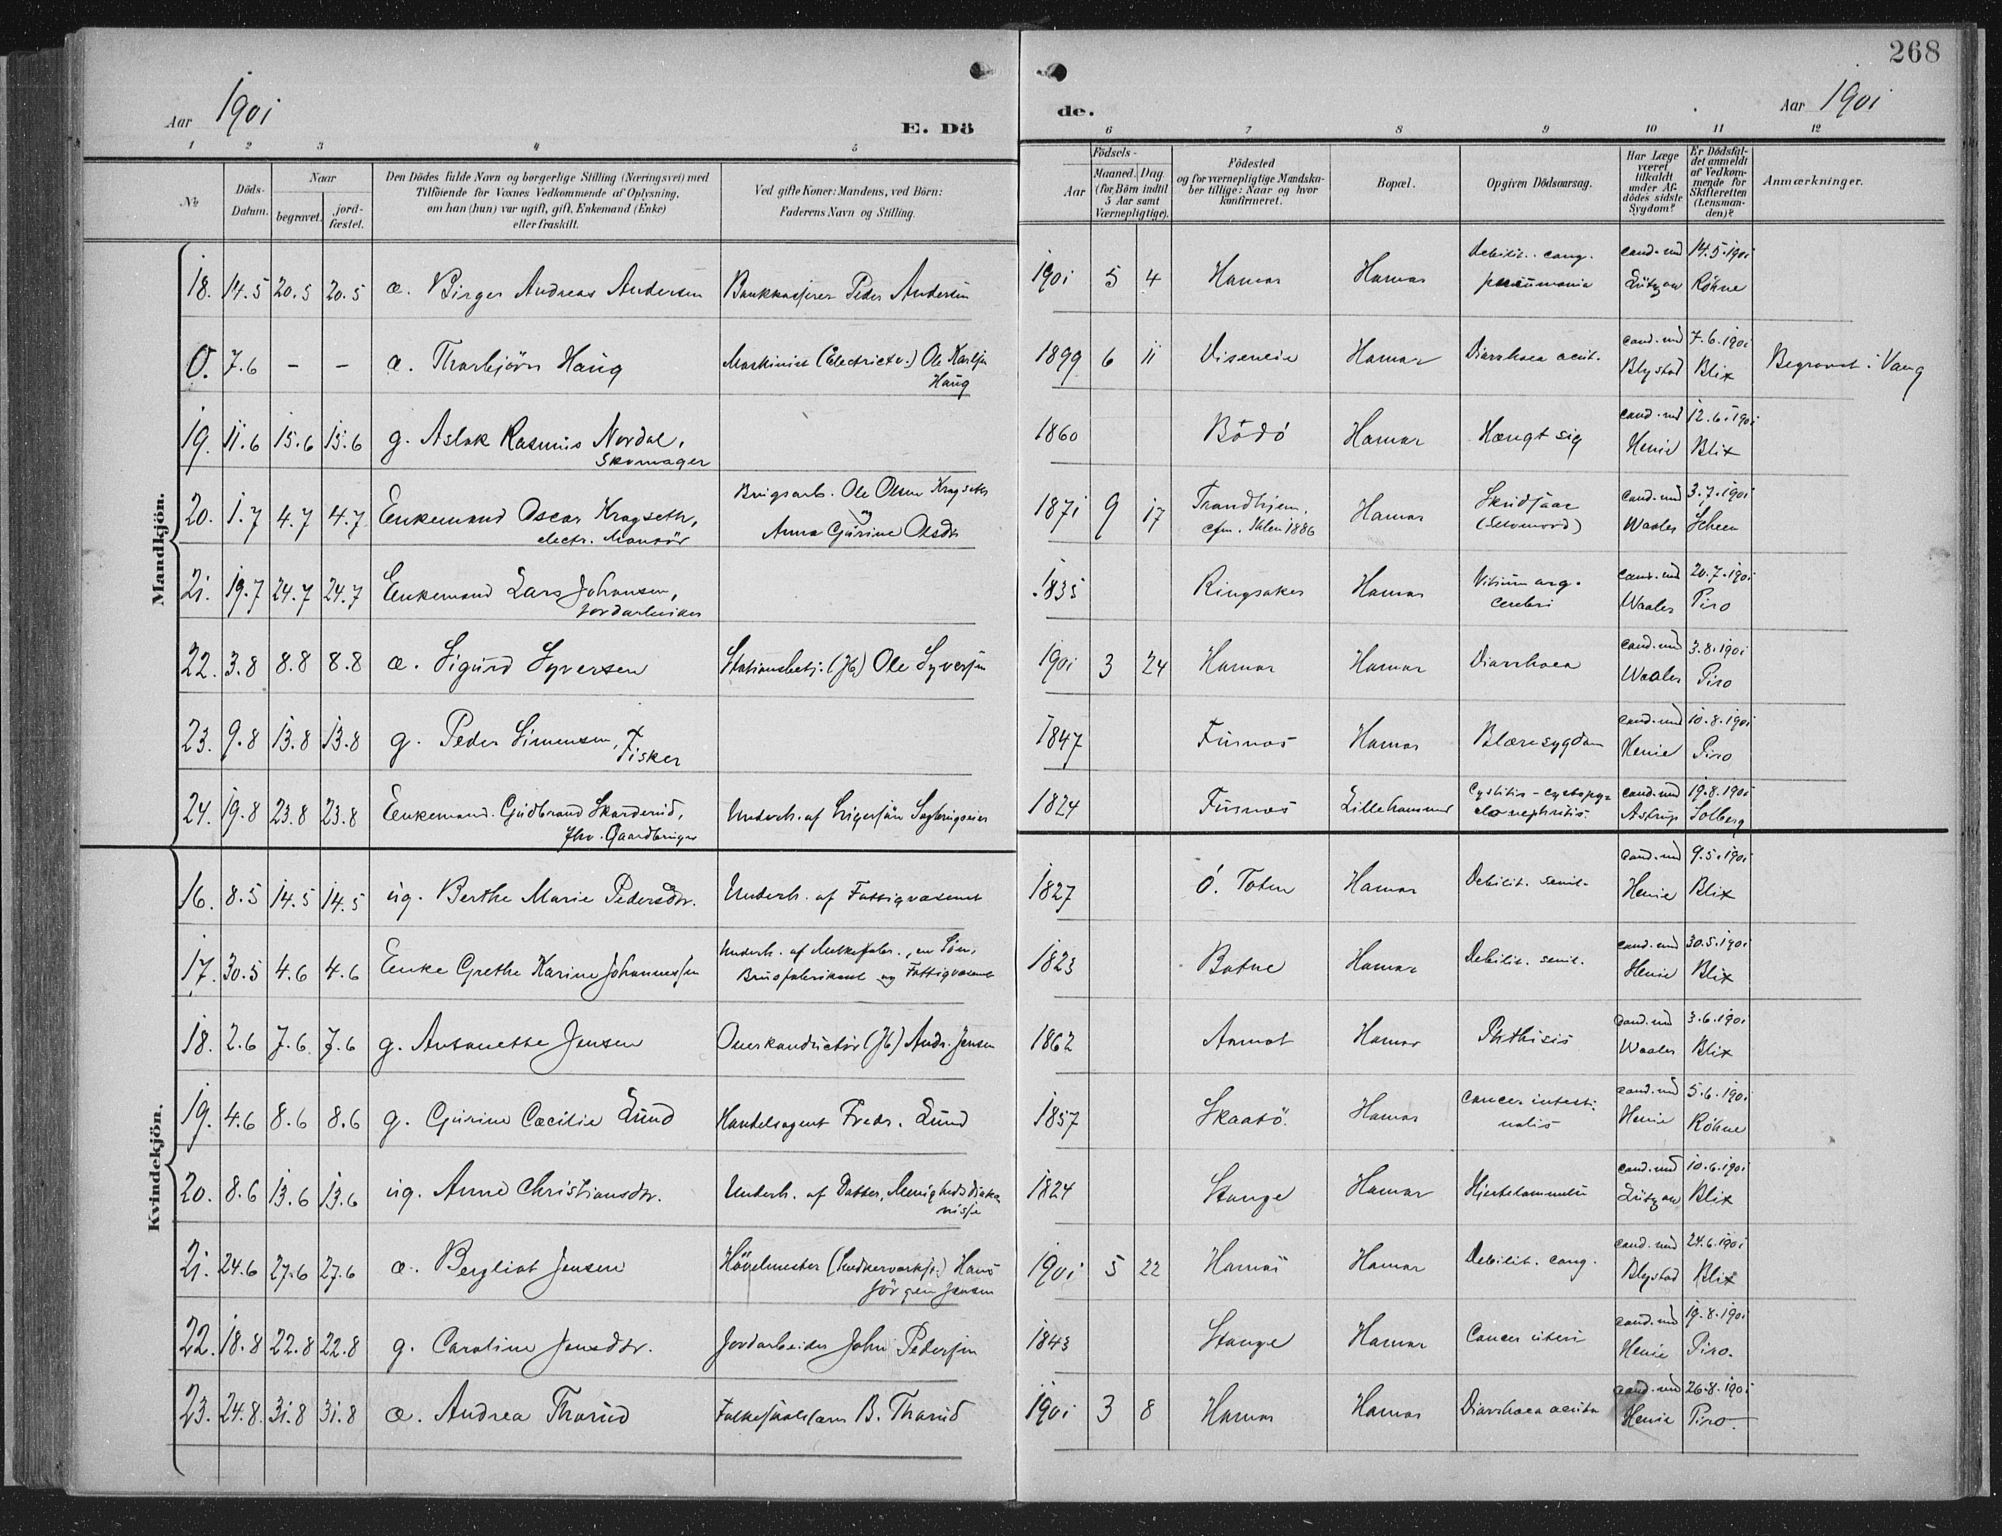 268
Aar 1901
E. Dö
de.
Aar 1901
1 2 3 4 5 6 7 8 9 10 11 12
№
Döds-
Datum.
Naar
begravet.
jord-
fæstet.
Den Dödes fulde Navn og borgerlige Stilling (Næringsvei) med
Tilföiende for Voxnes Vedkommende af Oplysning,
om han (hun) var ugift, gift, Enkemand (Enke)
eller fraskilt.
Ved gifte Koner: Mandens, ved Börn:
Faderens Navn og Stilling.
Födsels-
Aar
Maaned. Dag
(for Börn indtil
5 Aar samt
Værnepligtige).
Födested
og for værnepligtige Mandska-
ber tillige: Naar og hvor
konfirmeret.
Bopæl.
Opgiven Dödsaarsag.
Har Læge
været
tilkaldt
under Af-
dödes sidste
Sygdom?
Er Dödsfal-
det anmeldt
af Vedkom-
mende for
Skifteretten
(Lensman-
den)?
Anmærkninger.
Mandkjön.
18. 14.5 20.5 20.5 æ. Birger Andreas Andersen Bankkasserer Peder Andersen 1901 5 4 Hamar Hamar Debilit. cong. pneumonia cand. med Lützow 14.5.1901 Röhne
0. 7.6 – – æ. Thorbjörn Haug Maskinist (Electricitv.) Ole Karlsen Haug 1899 6 11 Disenein Hamar Diarrhoea acut. cand. med Blystad 7.6.1901 Blix Begravet i Vang
19. 11.6 15.6 15.6 g. Aslak Rasmus Nordal, Skomager 1860 Bödö Hamar Hængt sig cand. med Henie 12.6.1901 Blix
20. 1.7 4.7 4.7 Enkemand Oscar Kragseth, electr. Montör Brugsarb. Ole Olsen Kragseth og Anna Gurine Olsdr 1871 9 17 Trondhjem. cfm. 1886 Hamar Skudsaar (Selvmord) cand. med Waaler 3.7.1901 Scheen
21. 19.7 24.7 24.7 Enkemand Lars Johansen, Jordarbeider 1835 Ringsaker Hamar Vitium org. cerebri cand. med Waaler 20.7.1901 Piro
22. 3.8 8.8 8.8 æ. Sigurd Syversen Stationsbetj. (Jb) Ole Syversen 1901 3 24 Hamar Hamar Diarrhoea cand. med Waaler 3.8.1901 Piro
23. 9.8 13.8 13.8 g. Peder Simensen, Fisker 1847 Furnes Hamar Blæresygdom cand. med Henie 10.8.1901 Piro
24. 19.8 23.8 23.8 Enkemand Gudbrand Skarderud, fhv. Gaardbruger Underh. af Sagbrugseier 1824 Furnes Lillehammer Cystitis – cystopyelonephritis cand. med Astrup 19.8.1901 Solberg
Kvindekjön.
16. 8.5 14.5 14.5 ug. Berthe Marie Pedersdr. Underh. af Fattigvæsenet 1827 Ö. Toten Hamar Debilit. senil. cand. med Henie 9.5.1901 Blix
17. 30.5 4.6 4.6 Enke Grethe Karine Johannessen Underh. af en Sön, Brusfabrikant og Fattigvæsenet 1823 Botne Hamar Debilit. senil. cand. med Henie 30.5.1901 Blix
18. 2.6 7.6 7.6 g. Antonette Jensen Overkonductör (Jb) Andr. Jensen 1862 Aamot Hamar Phthisis cand. med Waaler 3.6.1901 Blix
19. 4.6 8.6 8.6 g. Gurine Cæcilie Lund Handelsagent Fredr. Lund 1857 Skaatö. Hamar Cancer intestinalis cand. med Henie 5.6.1901 Röhne
20. 8.6 13.6 13.6 ug. Anne Christiansdr. Underh. af Datter, Menighedsdiakonisse 1824 Stange Hamar Hjertelammelse cand. med Lützow 10.6.1901 Blix
21. 24.6 27.6 27.6 æ. Bergliot Jensen Hövelmester Hans Jörgen Jensen 1901 5 22 Hamar Hamar Debilit. cong. cand. med Blystad 24.6.1901 Blix
22. 18.8 22.8 22.8 g. Caroline Jensdr. Jordarbeider John Pedersen 1843 Stange Hamar Cancer uteri cand. med Henie 19.8.1901 Piro.
23. 24.8 31.8 31.8 æ. Andrea Thorud B. Thorud 1901 3 8 Hamar Hamar Diarrhoea acuta cand. med Henie 26.8.1901 Piro